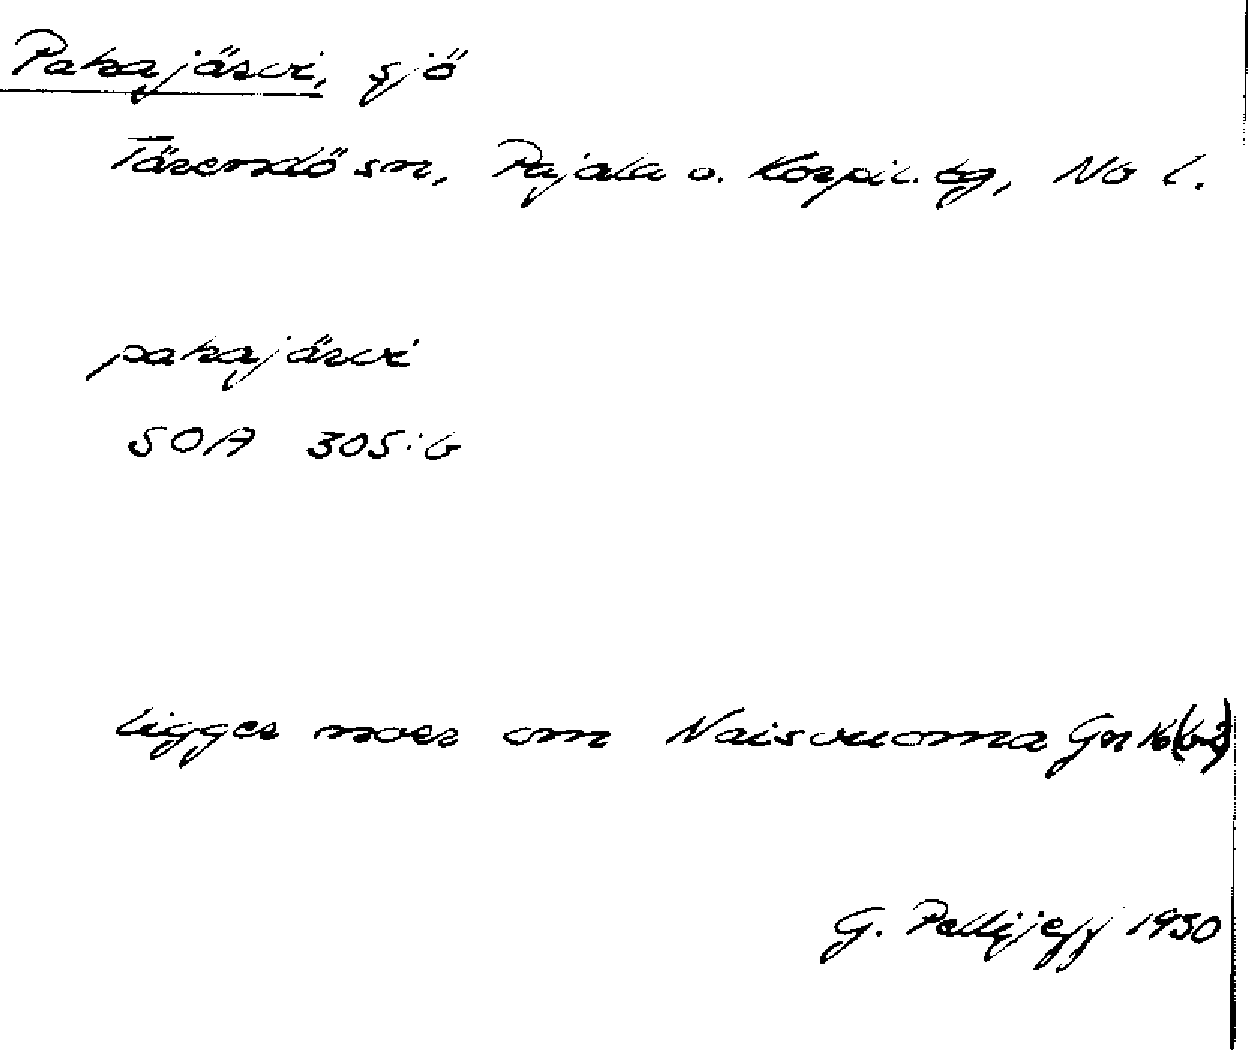 Pakajärvi, sjö
Tärendö sn, Pajala o. Korpil. tg, Nb l.
pakajärvi
SOA 305:6
ligger norr om Naisvuoma
G. Pellijeff 1950